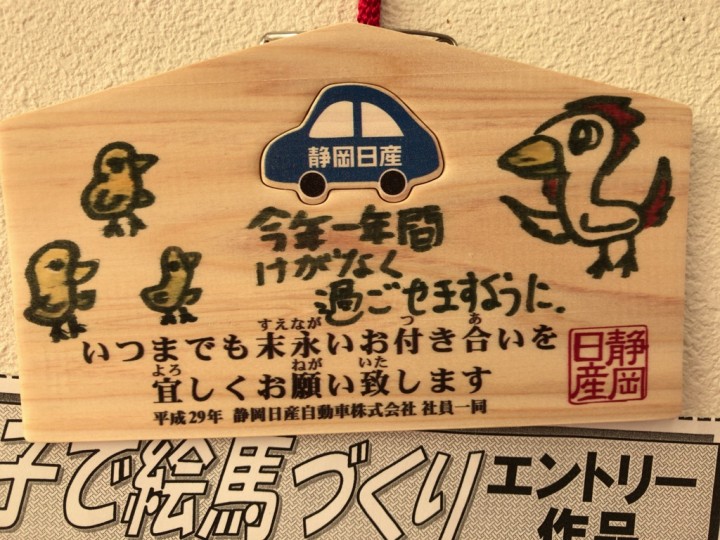 静岡日産
今年一年間
けがなく
過ごせますように.
いつまでも末永いお付き合いを
すえなが つ あ
宜しくお願い致します
よろ ねが いた
平成29年 静岡日産自動車株式会社 社員一同
静岡
日産
子で絵馬づくり
エントリー
作品